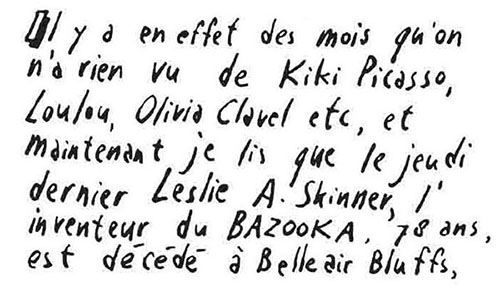 Il y a en effet des mois qu'on
n'a rien vu de Kiki Picasso,
Loulou, Olivia Clavel etc, et
maintenant je lis que le jeudi
dernier Leslie A. Skinner, l'
inventeur du BAZOOKA, 78 ans,
est décédé à Belleair Bluffs,